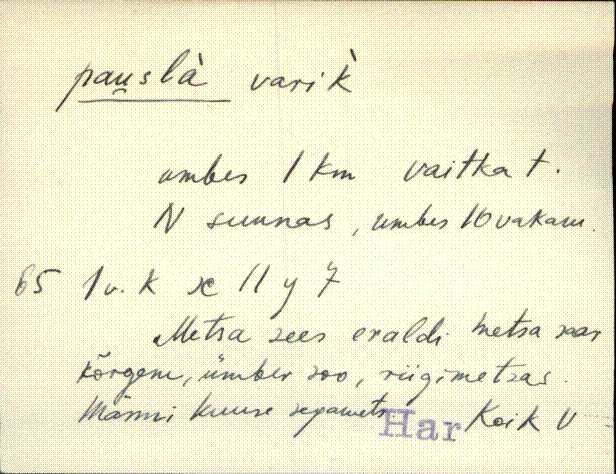 pau̯slà varik̀
umbes 1 km vaitka t.
N suunas, umbes 10 vakam.
65 1 v. k x 11 y 7
Metsa sees eraldi metsa saar
kõrgem, ümber soo, riigimetsas.
Männi kuuse segamets.
Har Koik V